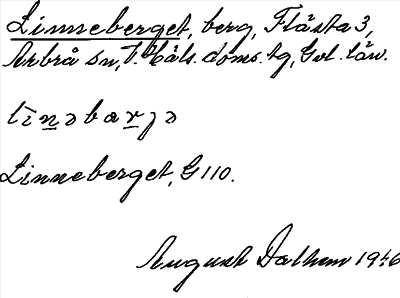 Linneberget, berg, Flästa 3,
Arbrå sn, V. Häls. doms. tg, Gvl. län.
lìn̲əbar̲jə
Linneberget, G 110.
August Dalhem 1946